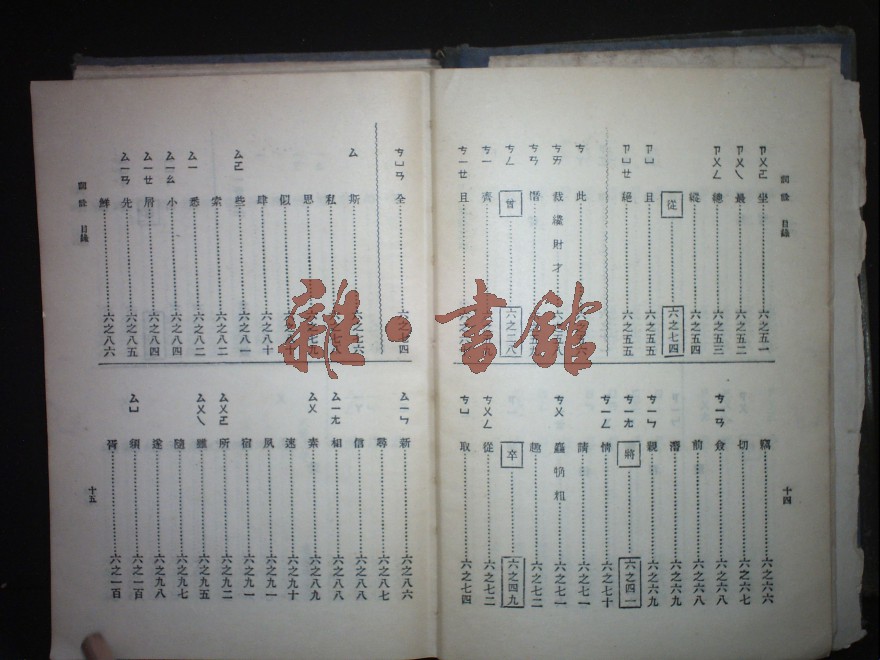 詞詮 目錄
ㄗㄨㄛ 坐 六之五一
ㄗㄨㄟ 最 六之五二
ㄗㄨㄥ 總 六之五三
縱 六之五四
從 六之七四
ㄗㄩ 且 六之五五
ㄗㄩㄝ 絕 六之五五
ㄘ 此
ㄘㄞ 裁纔財才
ㄘㄢ 憯
ㄘㄥ 曾 六之二八
ㄘㄧ 齊
ㄘㄧㄝ 且
竊 六之六六
切 六之六七
ㄘㄧㄢ 僉 六之六八
前 六之六八
潛 六之六九
ㄘㄧㄣ 親 六之六九
ㄘㄧㄤ 將 六之四一
ㄘㄧㄥ 情 六之七十
請 六之七一
ㄘㄨ 麤觕粗 六之七一
趣 六之七二
卒 六之四九
ㄘㄨㄥ 從 六之七二
ㄘㄩ 取 六之七四
十四
ㄘㄩㄢ 全
ㄙ 斯
私
思
似
肆 六之八十
ㄙㄛ 些 六之八一
索 六之八二
ㄙㄧ 悉 六之八二
ㄙㄧㄠ 小 六之八四
ㄙㄧㄝ 屑 六之八四
ㄙㄧㄢ 先 六之八五
鮮 六之八六
詞詮 目錄
ㄙㄧㄣ 新 六之八六
尋 六之八七
信 六之八八
ㄙㄧㄤ 相 六之八八
ㄙㄨ 素 六之八九
速 六之九十
夙 六之九一
宿 六之九一
ㄙㄨㄛ 所 六之九二
ㄙㄨㄟ 雖 六之九五
隨 六之九七
遂 六之九八
ㄙㄩ 須 六之一百
胥 六之一百
十五
雜·書館